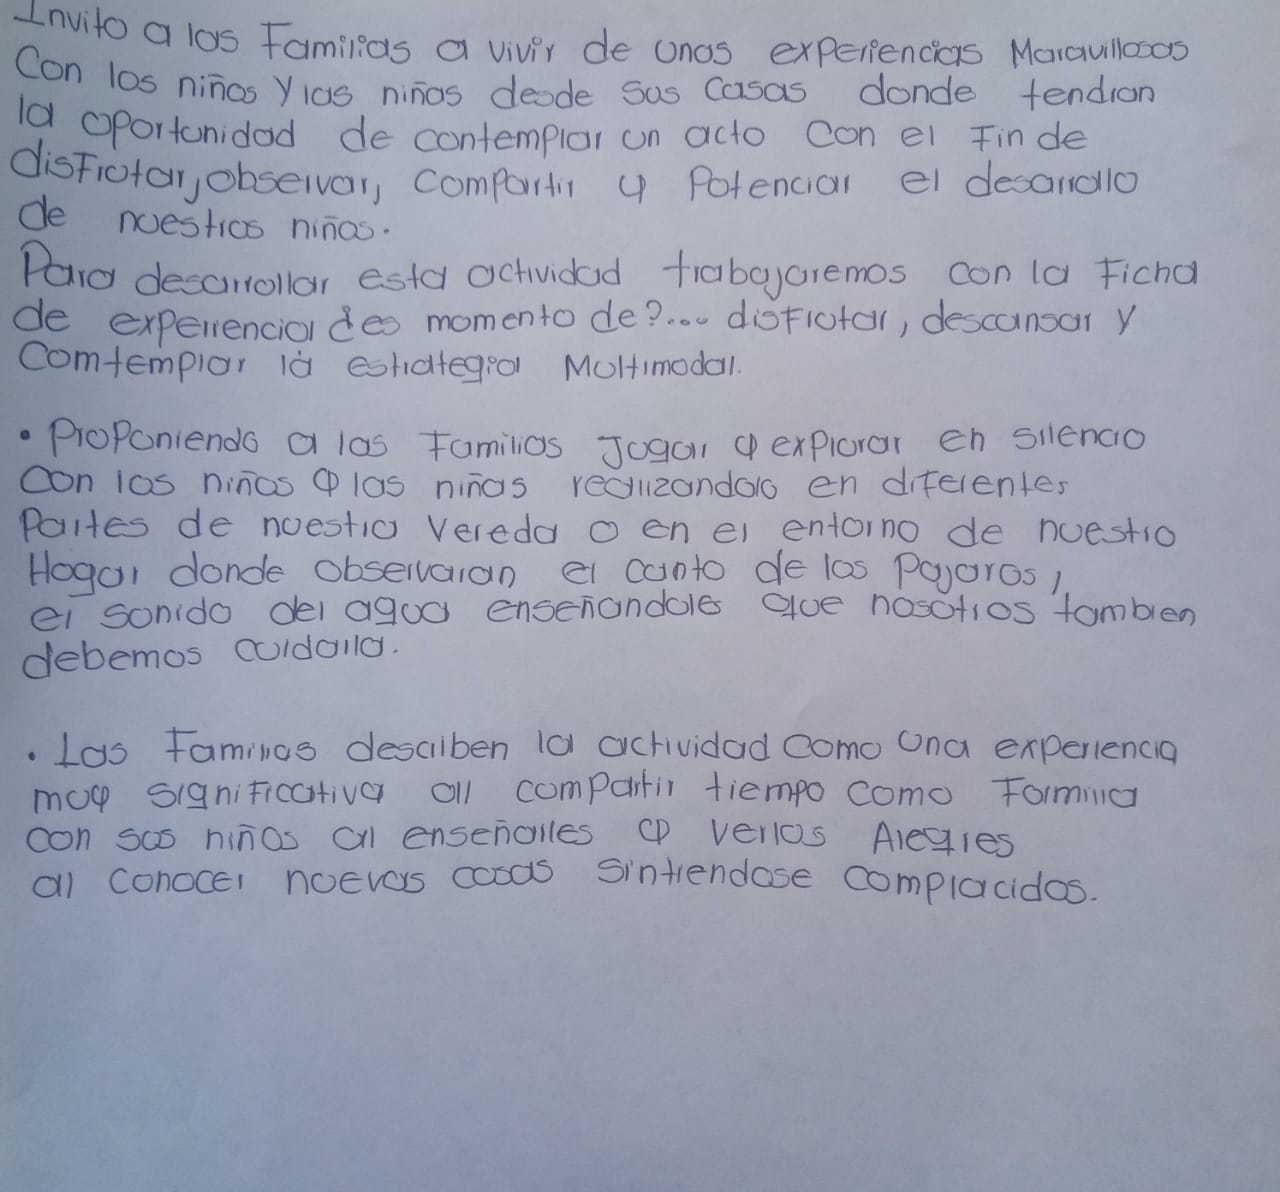 Invito a las Familias a vivir de unas experiencias Maravillosas
Con los niños y las niñas desde sus Casas donde tendran
la oportunidad de contemplar un acto con el Fin de
disFrutar, observar, compartir y Potenciar el desarrollo
de nuestros niños.
Para desarrollar esta actividad trabajaremos con la Ficha
de experiencia es momento de?... disFrutar, descansar y
Comtemplar la estrategia Multimodal.
• Proponiendo a las Familias Jugar y explorar en silencio
con los niños y las niñas realizandolo en diferentes
Partes de nuestra vereda o en el entorno de nuestro
Hogar donde observaran el canto de los Pajaros,
el sonido del agua enseñandoles que nosotros tambien
debemos cuidarla.
• Las Familias describen la actividad como una experiencia
muy significativa all compartir tiempo como Familia
con sus niños al enseñarles y verlos Alegres
al conocer nuevas cosas sintiendose complacidos.